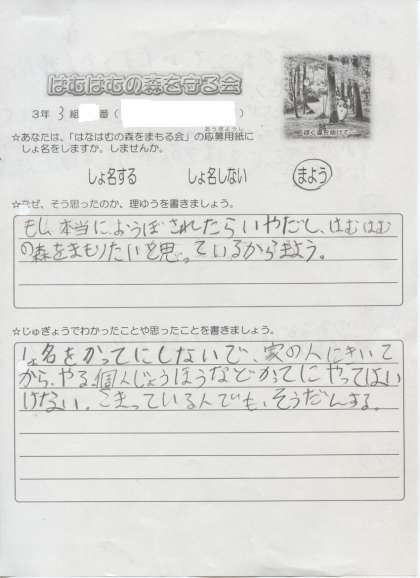 はむはむの森を守る会
3年 3組 番 ( )
☆あなたは、「はなはむの森をまもる会」の応募用紙に
しょ名をしますか。しませんか。
しょ名する しょ名しない まよう
☆なぜ、そう思ったのか、理ゆうを書きましょう。
もし、本当に、ようぼされたらいやだし、はむはむ
の森をまもりたいと思っているからまよう。
☆じゅぎょうでわかったことや思ったことを書きましょう。
しょ名をかってにしないで、家の人にきいて
から、やる。個人じょうほうなどかってにやってはい
けない。こまっている人でも、そうだんする。